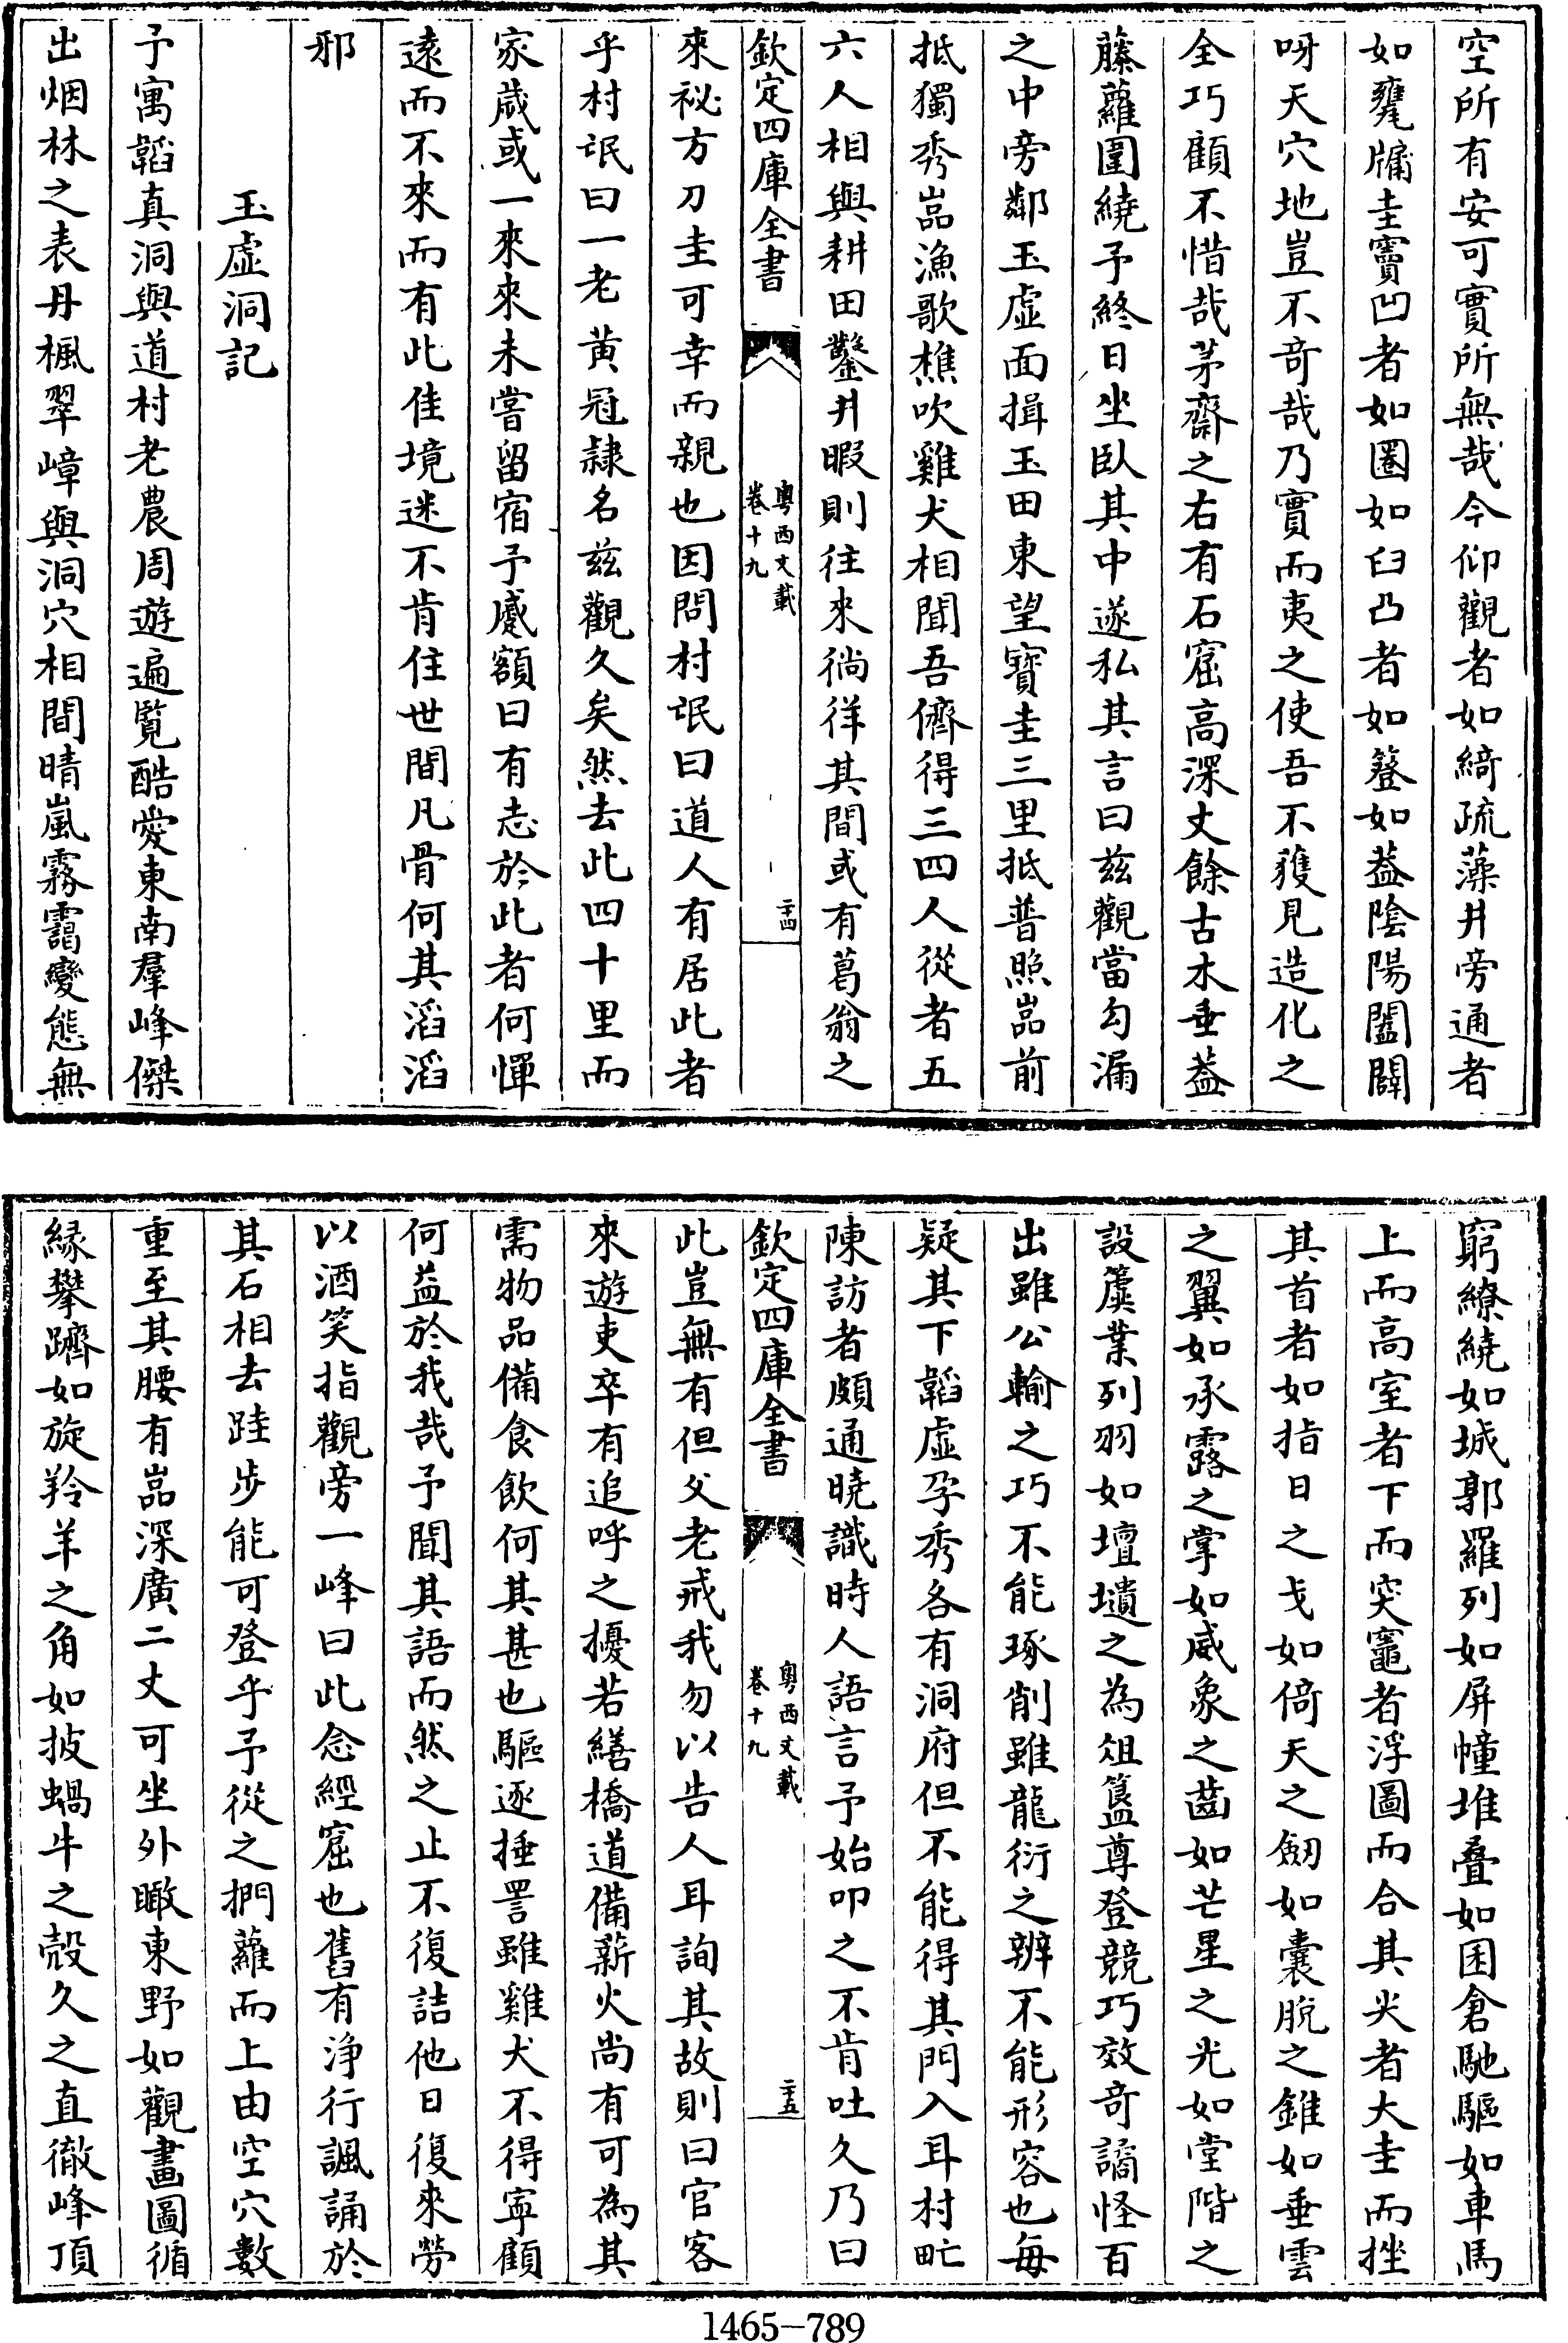 空所有安可實所無哉今仰觀者如綺疏藻井旁通者
如甕牖圭竇凹者如圈如臼凸者如簦如蓋陰陽闔闢
呀天穴地豈不竒哉乃實而夷之使吾不獲見造化之
全巧顧不惜哉茅齋之右有石窟高深丈餘古木垂蓋
藤蘿圍繞予終日坐臥其中遂私其言曰兹觀當勾漏
之中旁鄰玉虛面揖玉田東望寶圭三里抵普照嵓前
抵獨秀嵓漁歌樵吹雞犬相聞吾儕得三四人從者五
六人相與耕田鑿井暇則往來徜徉其間或有葛翁之
欽定四庫全書
粵西文載
卷十九
二十四
來祕方刀圭可幸而親也因問村氓曰道人有居此者
乎村氓曰一老黃冠隷名兹觀久矣然去此四十里而
家嵗或一來來未嘗留宿予蹙額曰有志於此者何憚
逺而不來而有此佳境迷不肯住世間凡骨何其滔滔
邪
玉虛洞記
予寓韜真洞與道村老農周遊遍覧酷愛東南羣峰傑
出烟林之表丹楓翠嶂與洞穴相間晴嵐霧靄變態無
窮繚繞如城郭羅列如屏幢堆叠如囷倉馳驅如車馬
上而高室者下而突竈者浮圖而合其尖者大圭而挫
其首者如指日之戈如倚天之劒如囊脫之錐如垂雲
之翼如承露之掌如威象之齒如芒星之光如堂階之
設簴業列羽如壇壝之為俎簋尊登競巧效竒譎怪百
出雖公輸之巧不能琢削雖龍衍之辨不能形容也每
疑其下韜虛孕秀各有洞府但不能得其門入耳村甿
陳訪者頗通曉識時人語言予始叩之不肯吐久乃曰
欽定四庫全書
粵西文載
卷十九
二十五
此豈無有但父老戒我勿以告人耳詢其故則曰官客
來遊吏卒有追呼之擾若繕橋道備薪火尚有可為其
需物品備食飲何其甚也驅逐捶詈雖雞犬不得寧顧
何益於我哉予聞其語而然之止不復詰他日復來勞
以酒笑指觀旁一峰曰此念經窟也舊有淨行諷誦於
其石相去跬步能可登乎予從之捫蘿而上由空穴數
重至其腰有嵓深廣二丈可坐外瞰東野如觀畫圖循
緣攀躋如旋羚羊之角如披蝸牛之殼久之直徹峰頂
1465-789